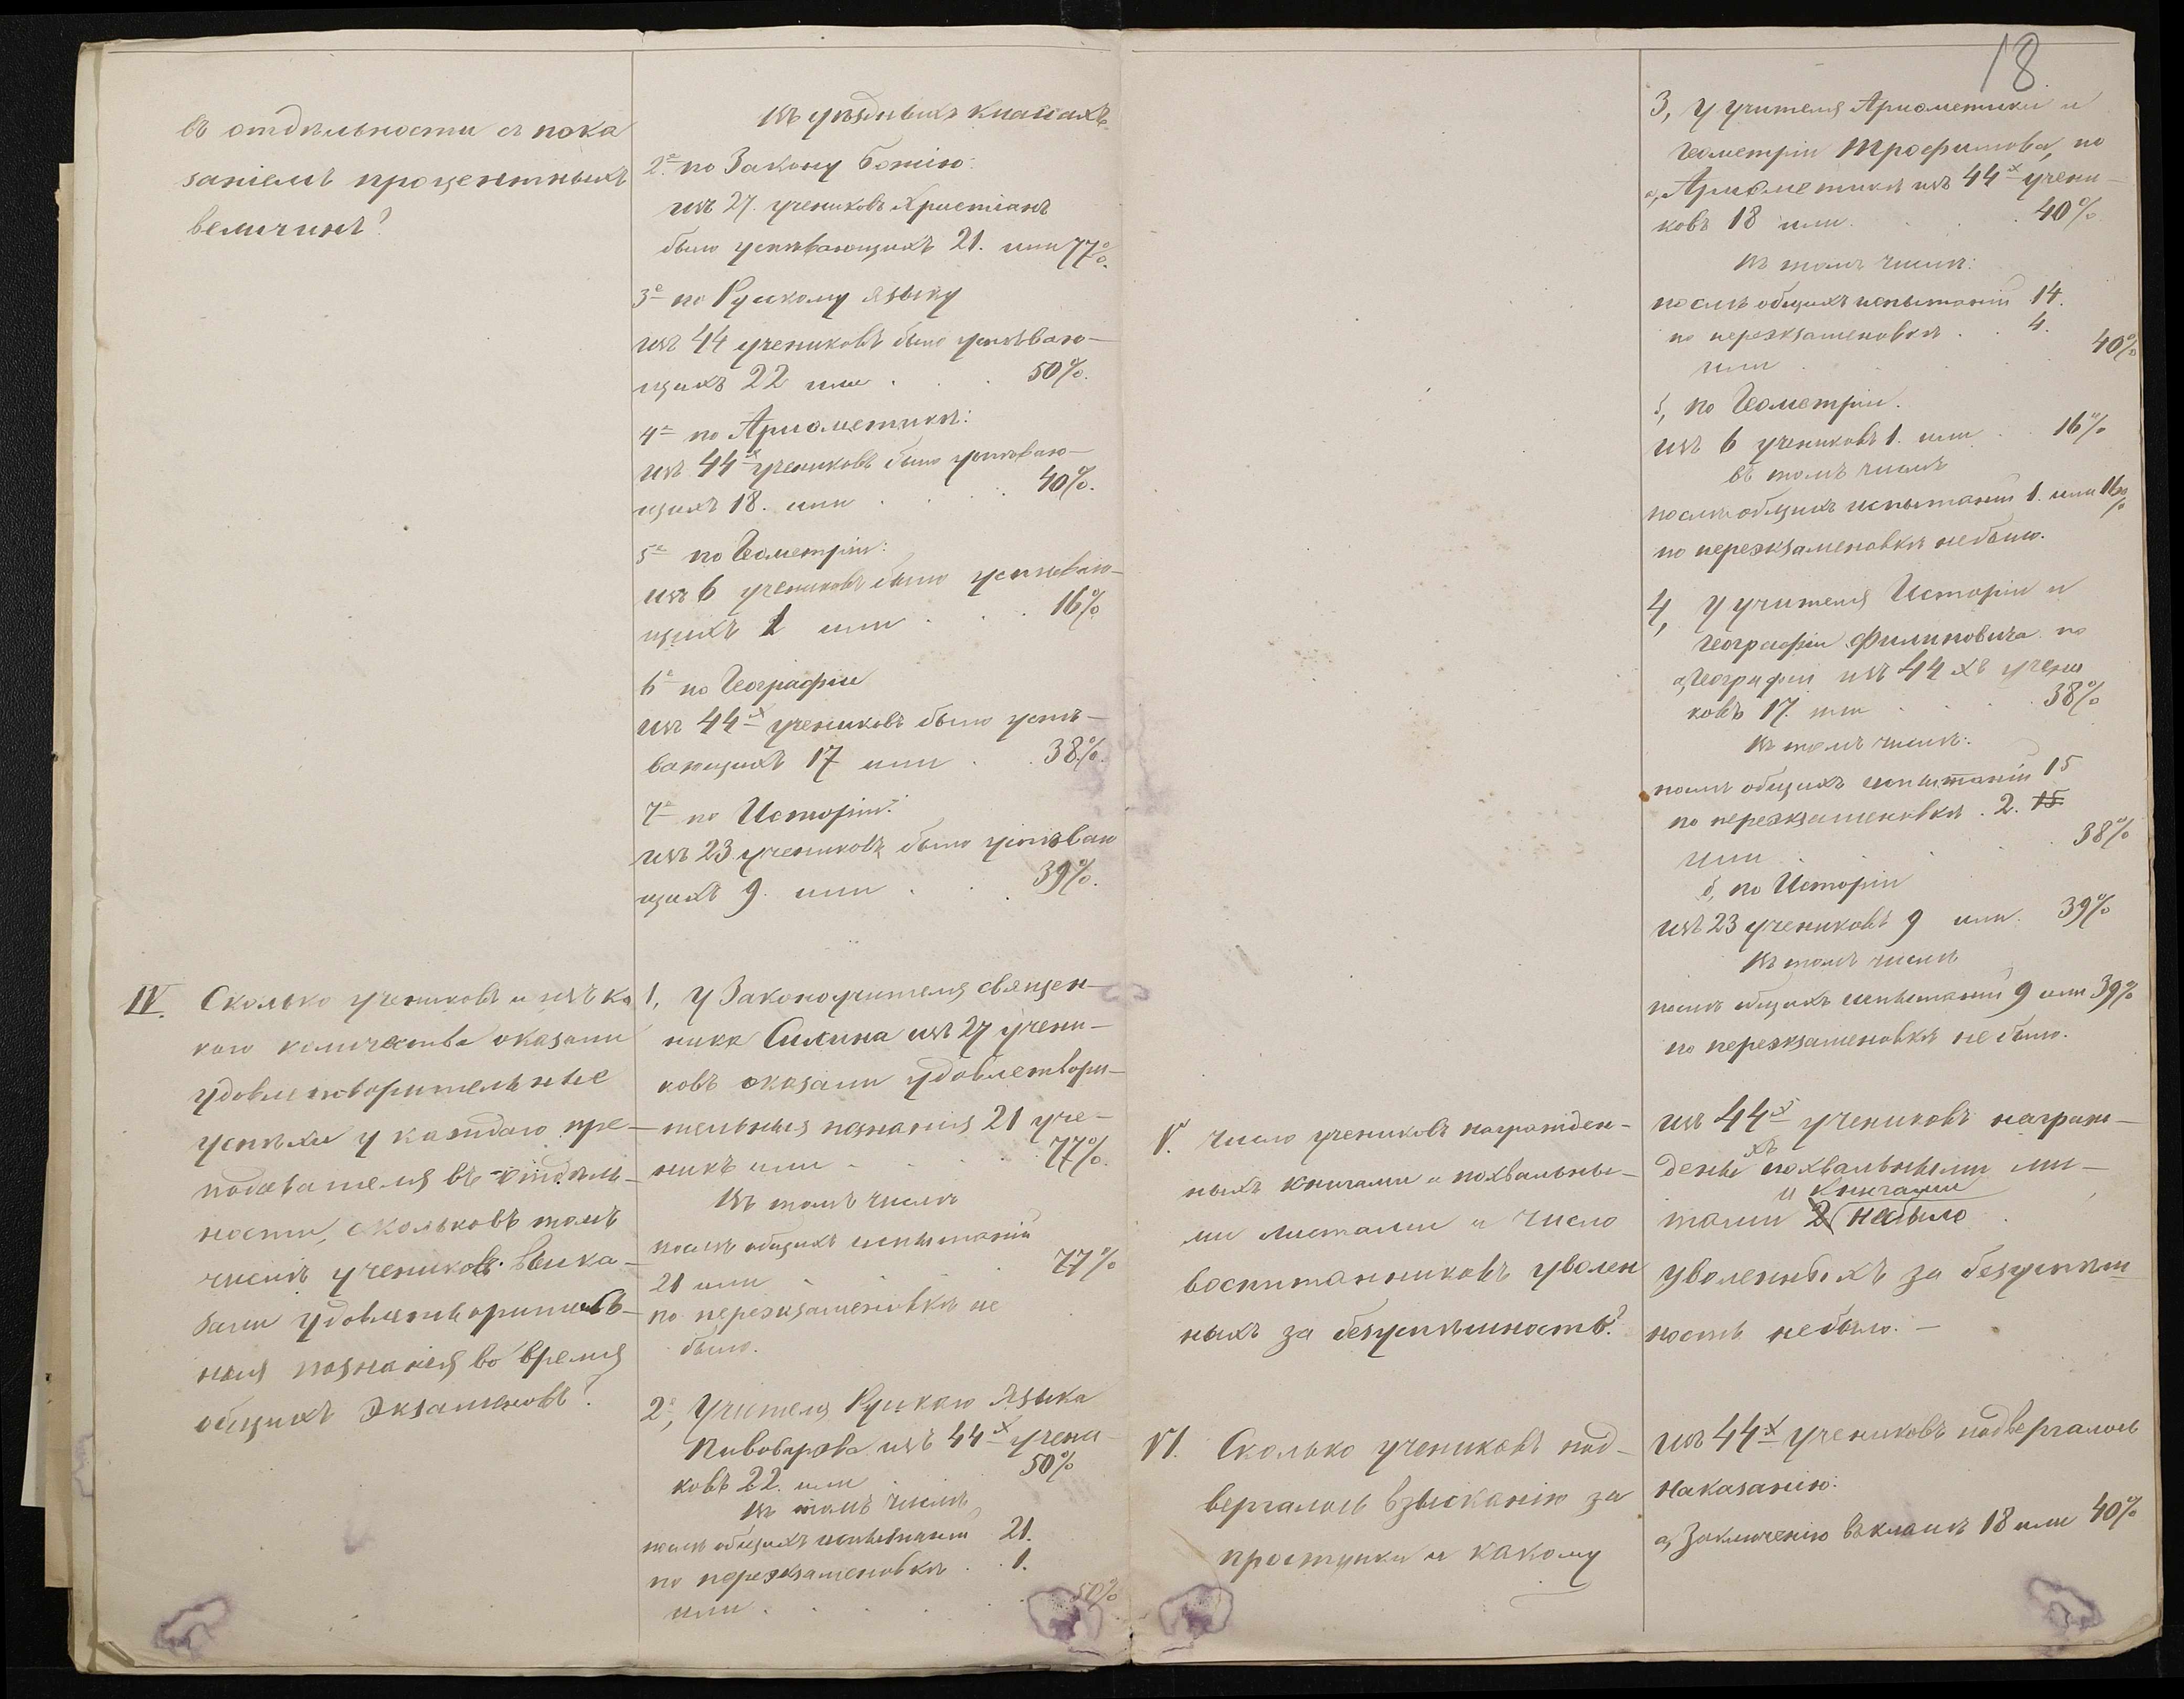 въ отдѣльности съ пока
заніемъ процентныхъ
величинъ?
IV. Сколько учениковъ и изъ ка
кого количества оказали
удовлетворительные
успѣхи у каждаго пре-
подавателя въ отдѣль-
ности, сколько въ томъ
числѣ учениковъ выка-
зали удовлетворитель-
ныя познанія во время
общихъ экзаменовъ?
Въ уѣздныхъ классахъ
2е по Закону Божію:
изъ 27. учениковъ Христіанъ
было успѣвающихъ 21. или 77%.
3е по Рускому языку
изъ 44 учениковъ было успѣваю-
щихъ 22 или . . . 50%.
4е по Ариѳметикѣ:
изъ 44х учениковъ было успѣваю-
щихъ 18. или . . . . 40%.
5е по Геометріи:
изъ 6 учениковъ было успѣваю-
щихъ 1 или . . . 16%
6е по Географіи
изъ 44х учениковъ было успѣ-
вающихъ 17 или . . 38%.
7е по Исторіи:
изъ 23 учениковъ было успѣваю
щихъ 9. или . . . 39%.
1, У Законоучителя священ-
ника Силина изъ 27 учени-
ковъ оказали удовлетвори-
тельныя познанія 21 уче-
никъ или . . . . 77%.
Въ томъ числѣ
послѣ общихъ испытаній
21 или . . . 77%
по переэкзаменовкѣ не
было.
2е, Учителя Рускаго Языка
Пивоварова изъ 44х учени-
ковъ 22. или . . 50%
Въ томъ числѣ
послѣ общихъ испытаній 21.
по переэкзаменовкѣ . . 1.
или . . . . . 50%
18.
3, У учителя Ариѳметики и
Геометріи Трофимова, по
а, Ариѳметикѣ изъ 44х учени-
ковъ 18 или . . . 40%
Въ томъ числѣ:
послѣ общихъ испытаній 14.
по переэкзаменовкѣ . . 4.
или . . . . 40%
б, по Геометріи.
изъ 6 учениковъ 1. или . . 16%
въ томъ числѣ
послѣ общихъ испытаній 1. или 16%
по переэкзаменовкѣ не было.
4, У учителя Исторіи и
Географіи Филиповича по
а, Географіи изъ 44хъ учени
ковъ 17. или . . . . 38%
Въ томъ числѣ:
послѣ общихъ испытаній 15
по переэкзаменовкѣ . 2. 15
или . . . . 38%
б, по Исторіи
изъ 23 учениковъ 9 или. 39%
Въ томъ числѣ
послѣ общихъ испытаній 9 или 39%
по переэкзаменовкѣ не было.
V. Число учениковъ награжден-
ныхъ книгами и похвальны-
ми листами и число
воспитанниковъ уволен
ныхъ за безуспѣшность?
изъ 44х учениковъ награж-
дены хъ похвальными ли-
и книгами
тами 2 небыло
уволенныхъ за безуспѣш
ность небыло. -
VI. Сколько учениковъ под-
вергалось взысканію за
проступки и какому
изъ 44х учениковъ подвергалось
наказанію:
а, Заключенію въ классѣ 18 или 40%